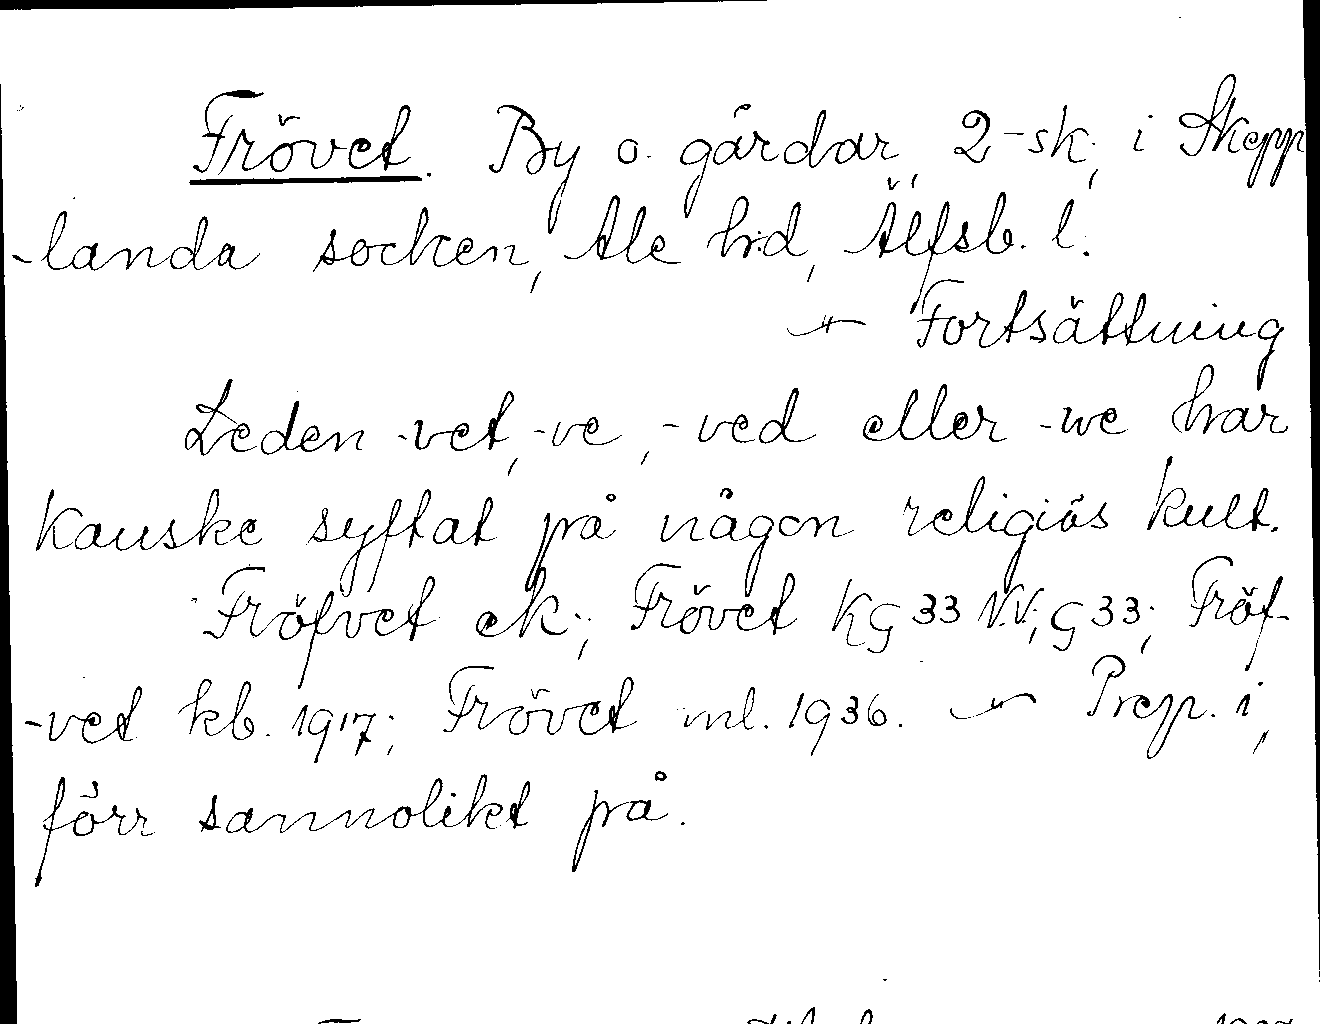 Frövet. By o. gårdar, 2-sk., i Skepp
-landa socken, Ale h:d, Älfsb. l.
Fortsättning
Leden -vet, -ve, -ved eller -we har
kanske syftat på någon religiös kult.
Fröfvet ek.; Frövet KG 33 N.V.; G 33; Fröf-
-vet kb. 1917; Frövet ml. 1936. — Prep. i,
förr sannolikt på.